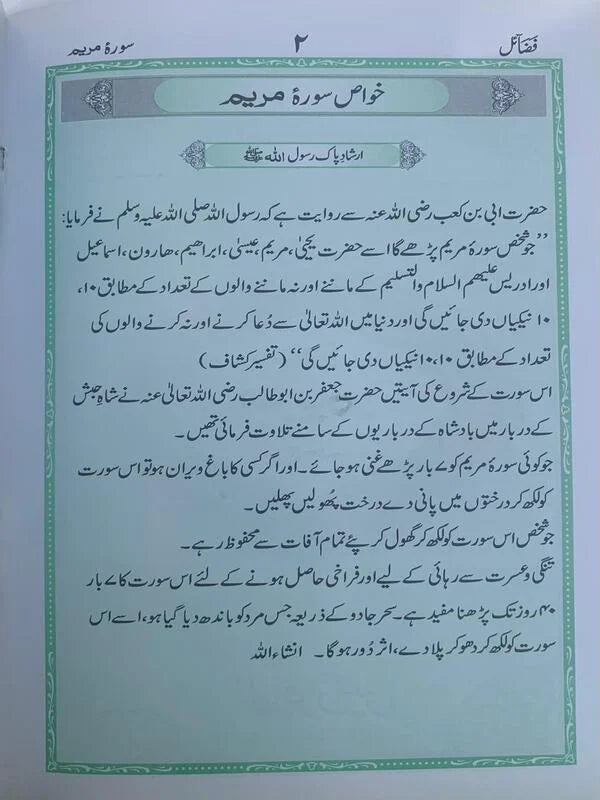 فضآئل ۲ سورۂ مریم
خواص سورۂ مریم
ارشادِ پاک رسول اللہ ﷺ
حضرت ابی بن کعب رضی اللہ عنہ سے روایت ہے کہ رسول اللہ صلی اللہ علیہ وسلم نے فرمایا:
”جو شخص سورۂ مریم پڑھے گا اسے حضرت یحییٰ، مریم، عیسیٰ، ابراھیم، ھارون، اسماعیل
اور ادریس علیھم السلام والتسلیم کے ماننے اور نہ ماننے والوں کے تعداد کے مطابق ۱۰،
۱۰ نیکیاں دی جائیں گی اور دنیا میں اللہ تعالیٰ سے دُعا کرنے اور نہ کرنے والوں کی
تعداد کے مطابق ۱۰،۱۰ نیکیاں دی جائیں گی“ (تفسیر کشاف)
اس سورت کے شروع کی آیتیں حضرت جعفر بن ابو طالب رضی اللہ تعالیٰ عنہ نے شاہِ حبش
کے دربار میں بادشاہ کے درباریوں کے سامنے تلاوت فرمائی تھیں۔
جو کوئی سورۂ مریم کو ۷ بار پڑھے غنی ہو جائے۔ اور اگر کسی کا باغ ویران ہو تو اس سورت
کو لکھ کر درختوں میں پانی دے درخت پھُولیں پھلیں۔
جو شخص اس سورت کو لکھ کر گھول کر پئے تمام آفات سے محفوظ رہے۔
تنگی و عسرت سے رہائی کے لیے اور فراخی حاصل ہونے کے لئے اس سورت کا ۷ بار
۴۰ روز تک پڑھنا مفید ہے۔ سحر جادو کے ذریعہ جس مرد کو باندھ دیا گیا ہو، اسے اس
سورت کو لکھ کر دھو کر پلا دے، اثر دُور ہوگا۔ انشاء اللہ